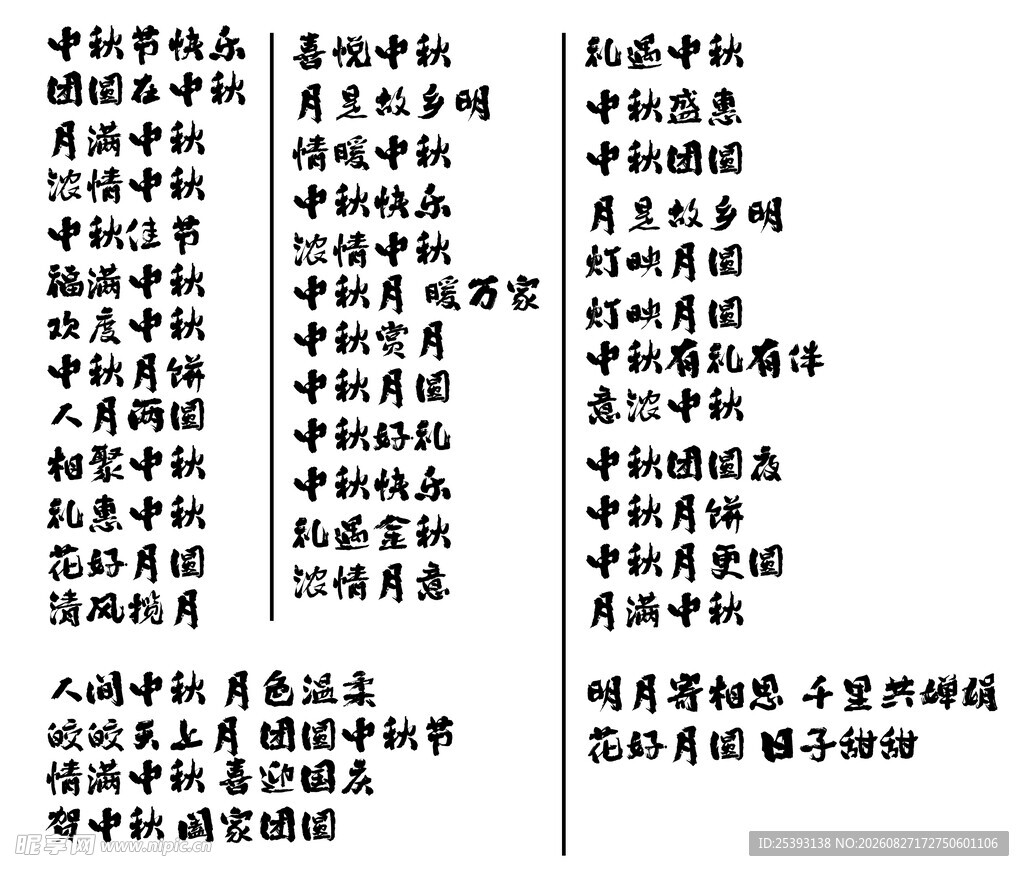 中秋节快乐
团圆在中秋
月满中秋
浓情中秋
中秋佳节
福满中秋
欢度中秋
中秋月饼
人月两圆
相聚中秋
礼惠中秋
花好月圆
清风揽月
喜悦中秋
月是故乡明
情暖中秋
中秋快乐
浓情中秋
中秋月 暖万家
中秋赏月
中秋月圆
中秋好礼
中秋快乐
礼遇金秋
浓情月意
礼遇中秋
中秋盛惠
中秋团圆
月是故乡明
灯映月圆
灯映月圆
中秋有礼有伴
意浓中秋
中秋团圆夜
中秋月饼
中秋月更圆
月满中秋
人间中秋 月色温柔
皎皎天上月 团圆中秋节
情满中秋 喜迎国庆
贺中秋 阖家团圆
明月寄相思 千里共婵娟
花好月圆 日子甜甜
昵享网 www.nipic.cn
ID:25393138 NO:20260827172750601106